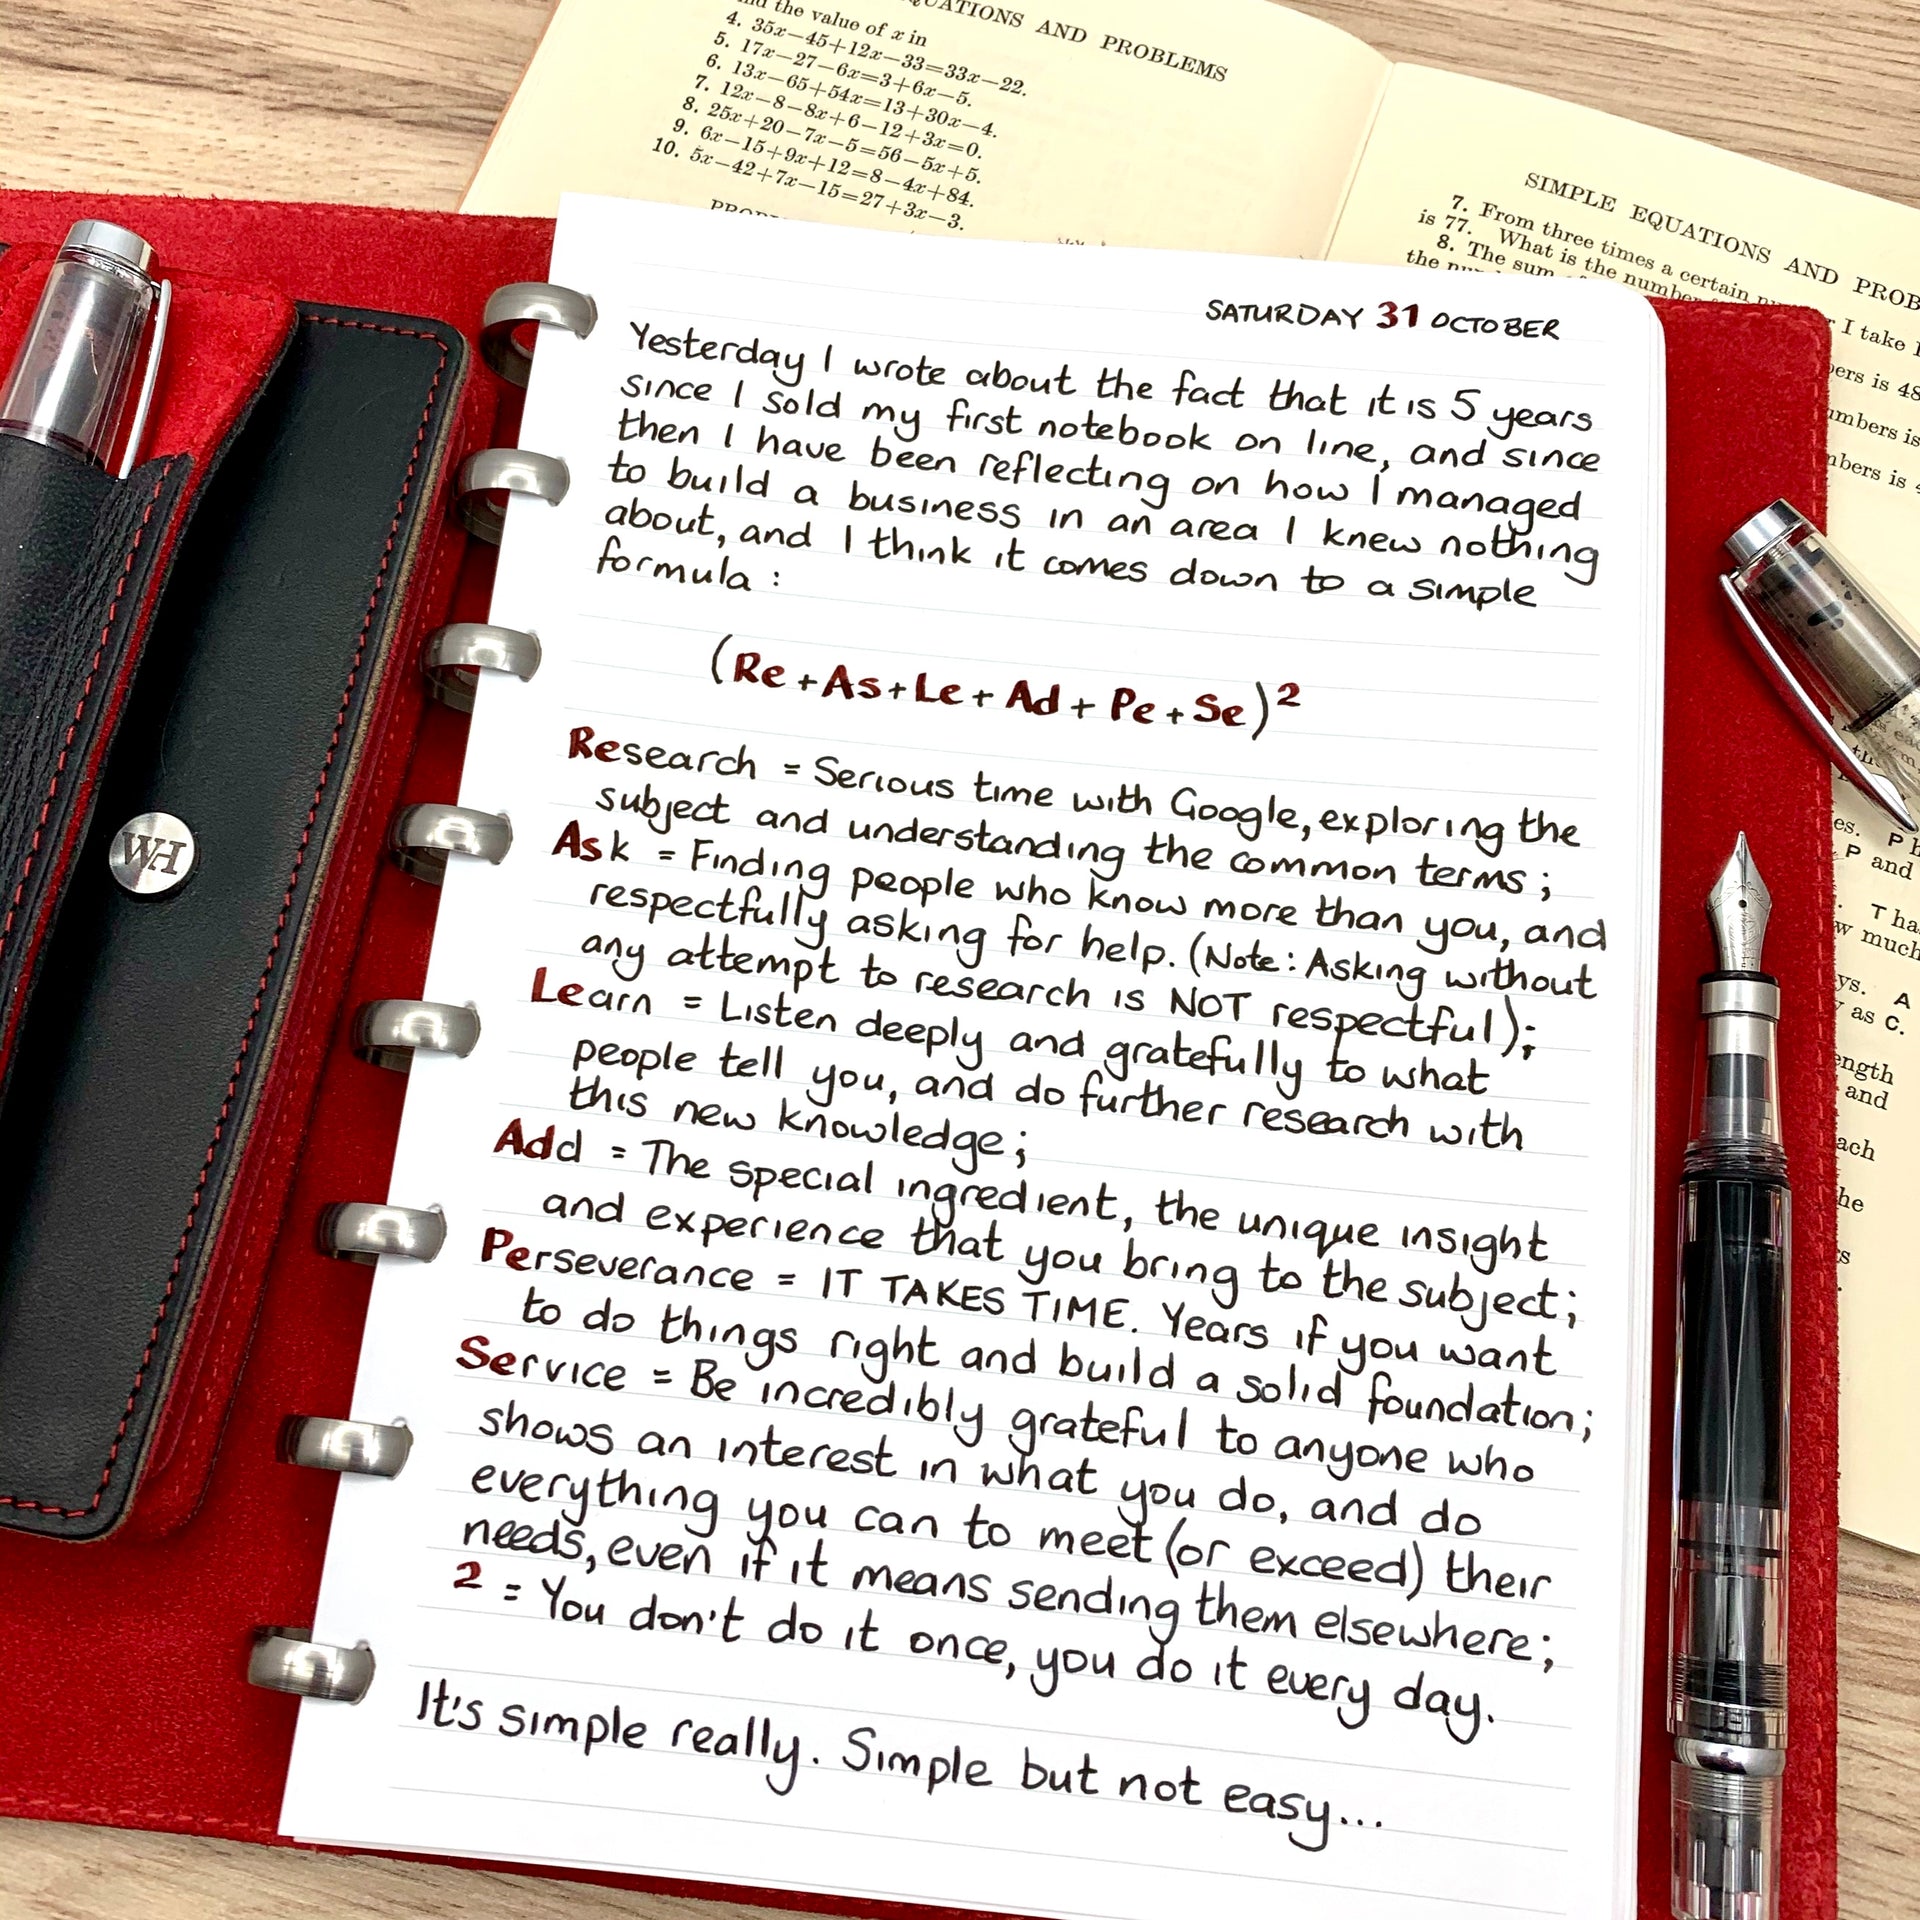 QUATIONS AND PROBLEMS
the value of x in
4. 35x−45+12x−33=33x−22.
5. 17x−27−6x=3+6x−5.
6. 13x−65+54x=13+30x−4.
7. 12x−8−8x+6−12+3x=0.
8. 25x+20−7x−5=56−5x+5.
9. 6x−15+9x+12=8−4x+84.
10. 5x−42+7x−15=27+3x−3.
SIMPLE EQUATIONS AND PROB
7. From three times a certain
is 77. What is the number
8. The sum
the
I take
is 48
is
is
SATURDAY 31 OCTOBER
Yesterday I wrote about the fact that it is 5 years
since I sold my first notebook on line, and since
then I have been reflecting on how I managed
to build a business in an area I knew nothing
about, and I think it comes down to a simple
formula :
(Re + As + Le + Ad + Pe + Se)²
Research = Serious time with Google, exploring the
subject and understanding the common terms ;
Ask = Finding people who know more than you, and
respectfully asking for help. (Note : Asking without
any attempt to research is NOT respectful);
Learn = Listen deeply and gratefully to what
people tell you, and do further research with
this new knowledge;
Add = The special ingredient, the unique insight
and experience that you bring to the subject;
Perseverance = IT TAKES TIME. Years if you want
to do things right and build a solid foundation;
Service = Be incredibly grateful to anyone who
shows an interest in what you do, and do
everything you can to meet (or exceed) their
needs, even if it means sending them elsewhere;
2 = You don't do it once, you do it every day.
It's simple really. Simple but not easy...
WH
P and
w much
ys. A
as C.
and